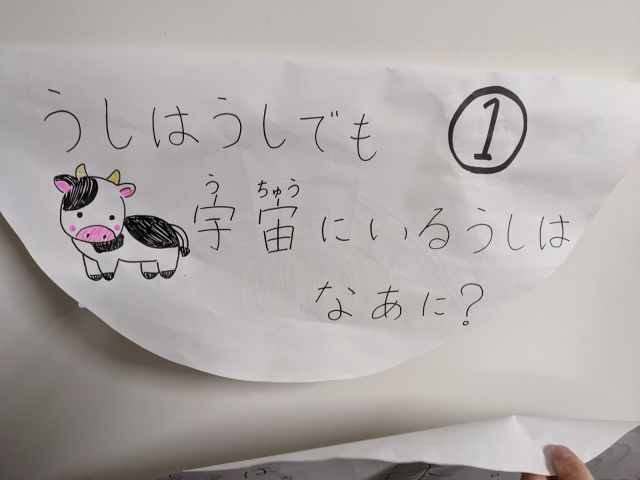 うしはうしでも ①
宇宙にいるうしは
うちゅう
なあに?